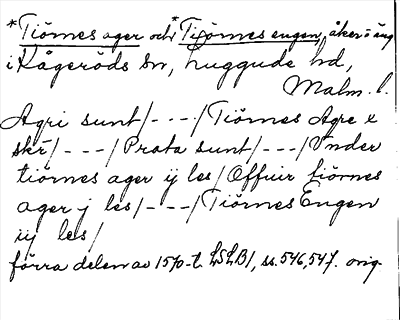 *Tiörnes ager och *Tiörnes engen, åker o äng
i Kågeröds sn, Luggude hd,
Malm. l.
Agri sunt/- - - -/Tiörnes Agre x
skr/- - -/Prata sunt/- - -/Vnder
tiörnes ager ij les/Offuir tiörnes
ager j les/- - - -/Tiörnes Engen
iij les/
förra delen av 1570-t. LSLB1, ss. 546, 547. orig.